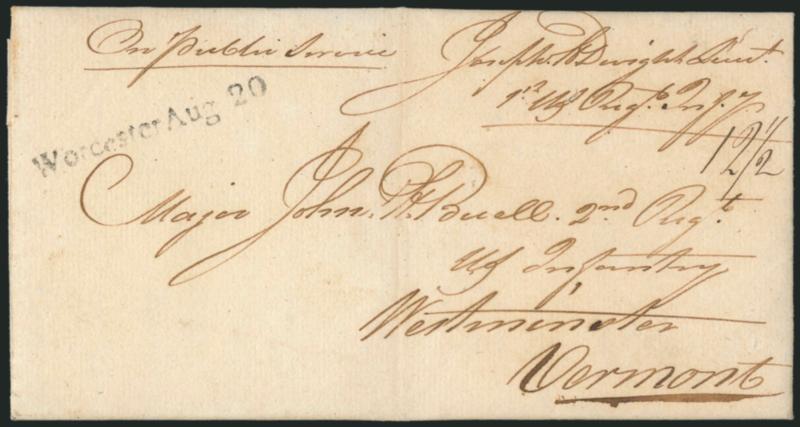 On Public Service
Joseph Dwight Lieut.
1st US Regt. Inf.y
Worcester Aug 20
12 1/2
Major John H. Buell. 2nd Regt.
US Infantry
Westminster
Vermont